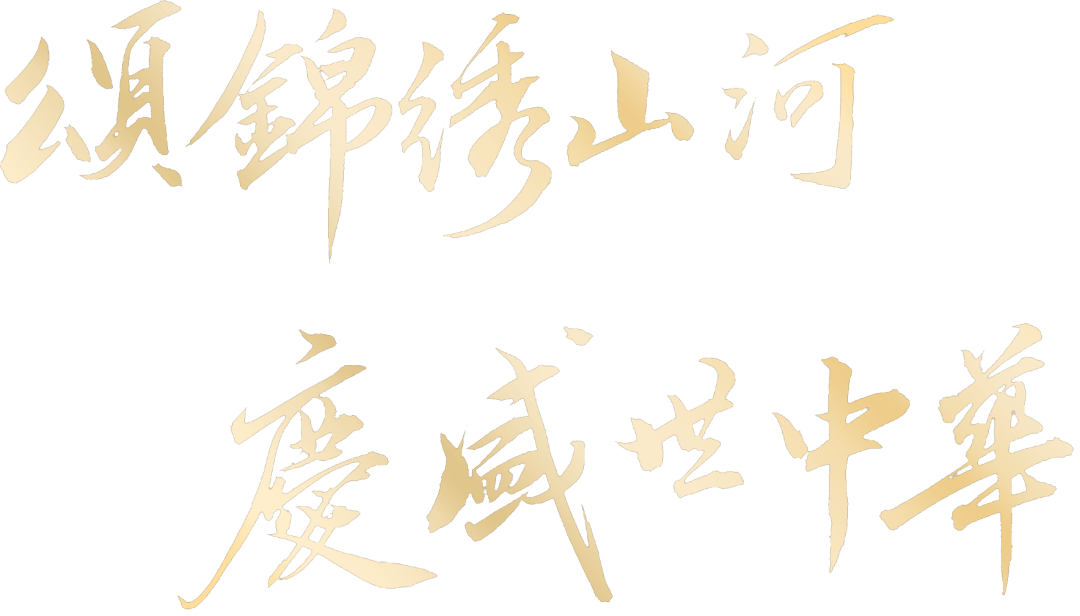 頌錦绣山河
慶盛世中華